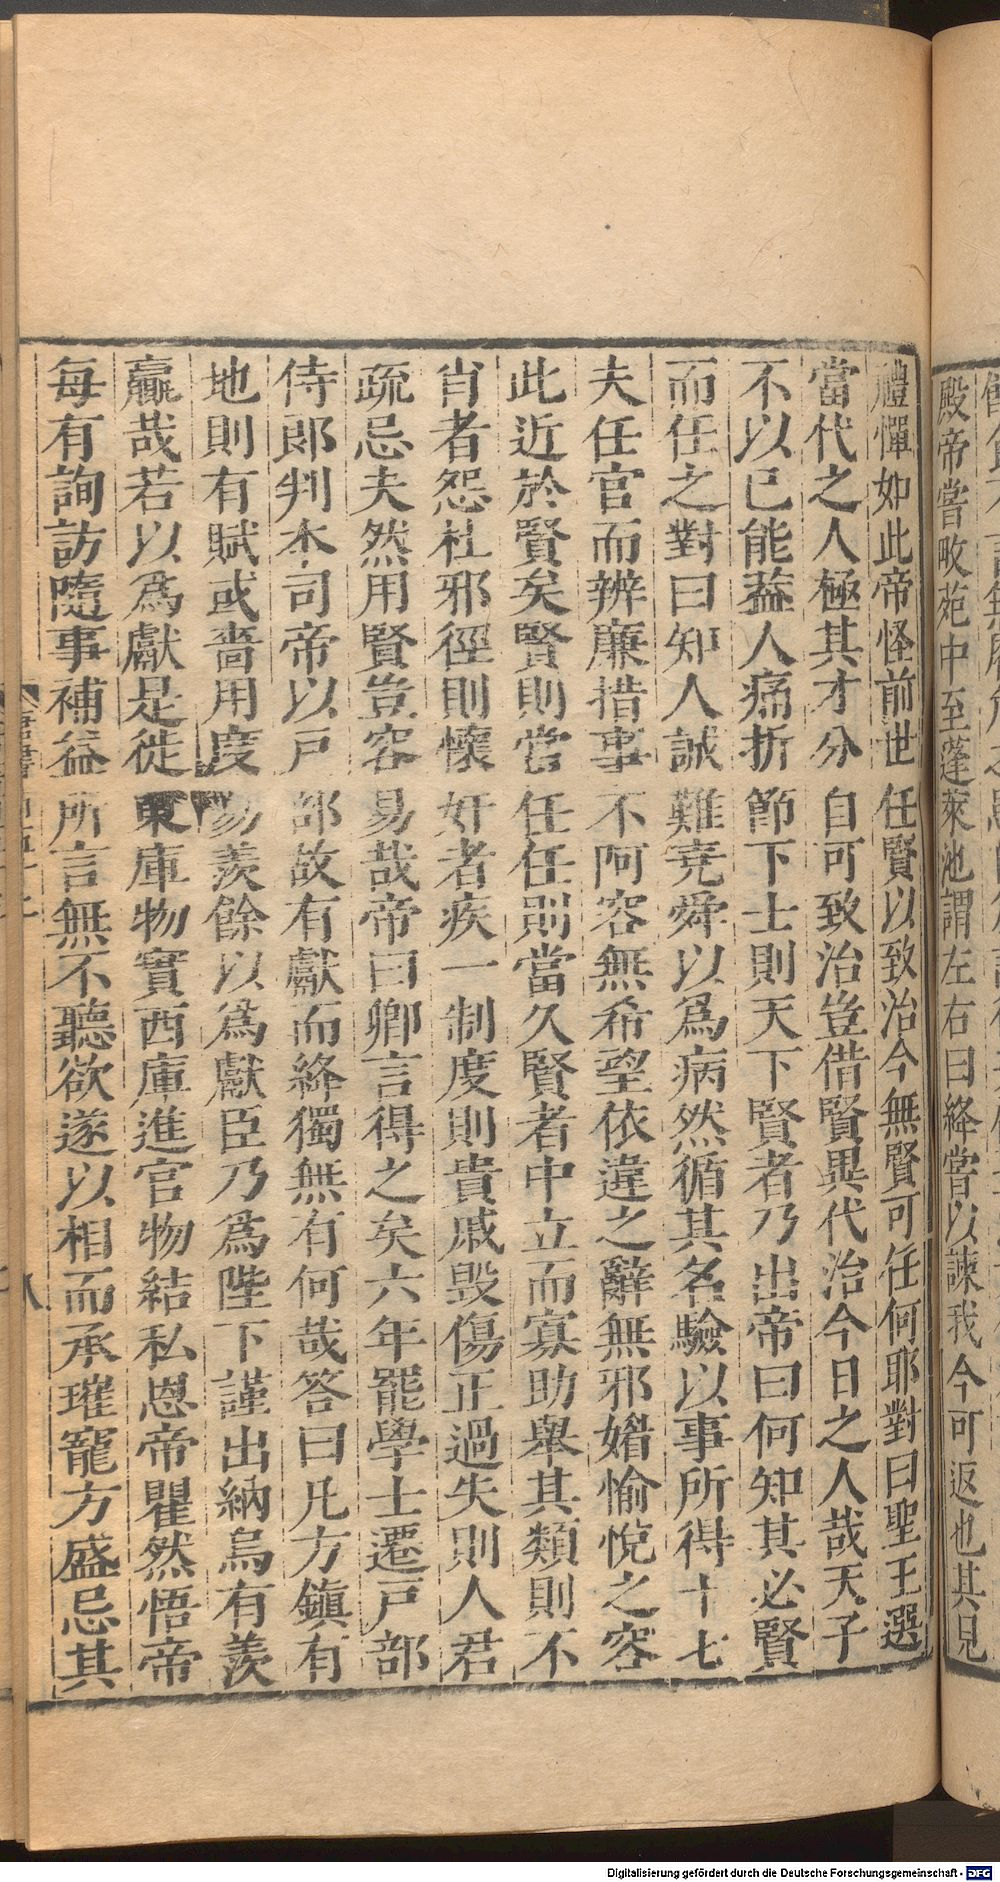 殿帝嘗畋苑中至蓬萊池謂左右曰絳嘗以諫我今可返也其見
禮憚如此帝怪前世任賢以致治今無賢可任何耶對曰聖王選
當代之人極其才分自可致治豈借賢異代治今日之人哉天子
不以已能蓋人痛折節下士則天下賢者乃出帝曰何知其必賢
而任之對曰知人誠難堯舜以爲病然循其名驗以事所得十七
夫任官而辨廉措事不阿容無希望依違之辭無邪媚愉悅之容
此近於賢矣賢則當任任則當久賢者中立而寡助舉其類則不
肖者怨杜邪徑則懷奸者疾一制度則貴戚毀傷正過失則人君
疏忌夫然用賢豈容易哉帝曰卿言得之矣六年罷學士遷戶部
侍郎判本司帝以戶部故有獻而絳獨無有何哉答曰凡方鎮有
地則有賦或嗇用度易羨餘以爲獻臣乃爲陛下謹出納烏有羨
贏哉若以爲獻是徙東庫物實西庫進官物結私恩帝瞿然悟帝
每有詢訪隨事補益所言無不聽欲遂以相而承璀寵方盛忌其
八
Digitalisierung gefördert durch die Deutsche Forschungsgemeinschaft - DFG